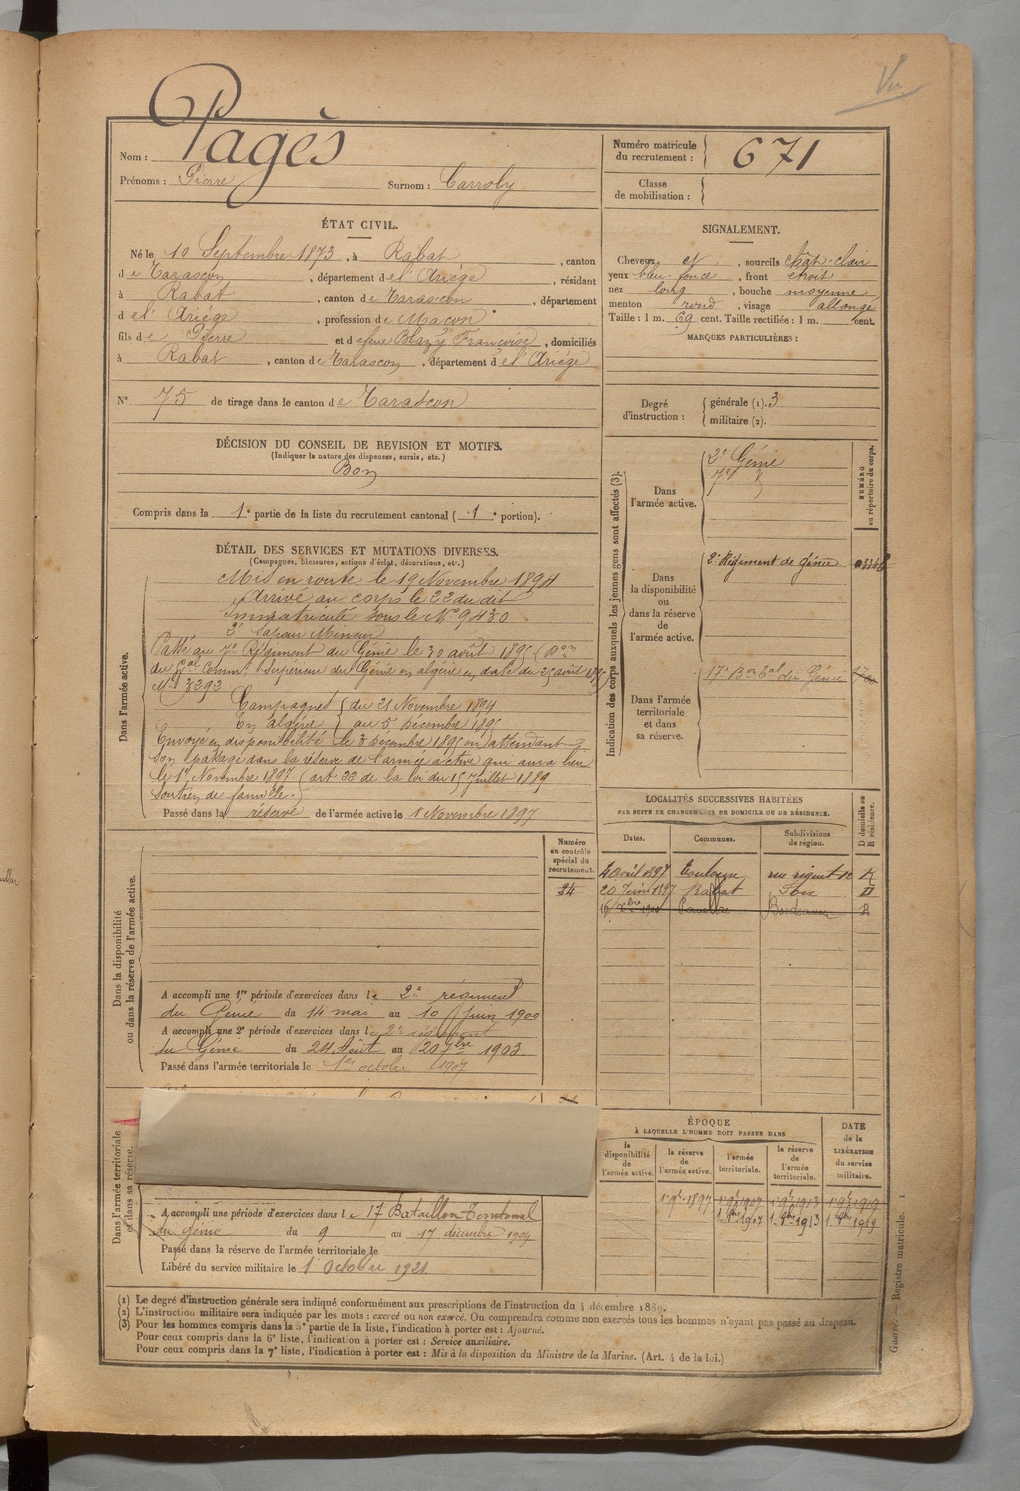 Vu
Nom : Pagès
Prénoms : Pierre Surnom : Carroby
Numéro matricule du recrutement : 671
Classe de mobilisation :
ÉTAT CIVIL.
Né le 10 Septembre 1873, à Rabat, canton
de Tarascon, département de l'Ariège, résidant
à Rabat, canton de Tarascon, département
de l'Ariège, profession de Maçon
fils de Pierre et de feue Blazy Françoise, domiciliés
à Rabat, canton de Tarascon, département de l'Ariège
N° 75 de tirage dans le canton de Tarascon
SIGNALEMENT.
Cheveux et, sourcils chât-clair
yeux bleu-foncé, front étroit
nez long, bouche moyenne
menton rond, visage allongé
Taille : 1 m. 69 cent. Taille rectifiée : 1 m. cent.
MARQUES PARTICULIÈRES :
Degré d'instruction : générale (1). 3
militaire (2).
DÉCISION DU CONSEIL DE REVISION ET MOTIFS.
(Indiquer la nature des dispenses, sursis, etc.)
Bon
Compris dans la 1e partie de la liste du recrutement cantonal (1e portion).
DÉTAIL DES SERVICES ET MUTATIONS DIVERSES.
(Campagnes, blessures, actions d'éclat, décorations, etc.)
Dans l'armée active.
Mis en route le 19 Novembre 1894
Arrivé au corps le 22 du dit
Immatriculé sous le N° 9430
2e Sapeur Mineur
Passé au 7e Régiment du Génie le 30 août 1895 (Bon
du Gal Commt Supérieur du Génie en algérie en date du 25 août 1895
N° 3293
Campagnes du 21 Novembre 1894
En algérie au 5 Décembre 1895
Envoyé en disponibilité le 8 Décembre 1895 en attendant
son passage dans la réserve de l'armée active qui aura lieu
le 1er Novembre 1897 (art 22 de la loi du 15 Juillet 1889
Soutien de famille.)
Passé dans la réserve de l'armée active le 1 Novembre 1897
Indication des corps auxquels les jeunes gens sont affectés (3).
NUMÉRO au répertoire du corps.
Dans l'armée active.
2e Génie
7e d°
Dans la disponibilité ou dans la réserve de l'armée active.
2e Régiment de génie
Dans l'armée territoriale et dans sa réserve.
17e Bon Tal du Génie
LOCALITÉS SUCCESSIVES HABITÉES
PAR SUITE DE CHANGEMENTS DE DOMICILE OU DE RÉSIDENCE.
Dates. Communes. Subdivisions de région. D domicile ou R résidence.
4 avril 1897 Toulouse R
20 Juin 1897 Rabat Foix D
Bordeaux R
Dans la disponibilité ou dans la réserve de l'armée active.
Numéro au contrôle spécial du recrutement.
24
A accompli une 1re période d'exercices dans le 2e régiment
du Génie du 14 mai au 10 Juin 1900
A accompli une 2e période d'exercices dans le 2e régiment
du Génie du 24 Août au 20 7bre 1903.
Passé dans l'armée territoriale le 1er octobre 1907
Dans l'armée territoriale et dans sa réserve.
A accompli une période d'exercices dans le 17 Bataillon Territorial
du génie du 9 au 17 décembre 1909
Passé dans la réserve de l'armée territoriale le
Libéré du service militaire le 1 octobre 1921
ÉPOQUE
À LAQUELLE L'HOMME DOIT PASSER DANS
la disponibilité de l'armée active. la réserve de l'armée active. l'armée territoriale. la réserve de l'armée territoriale. DATE de la LIBÉRATION du service militaire.
1er 9bre 1897 1er 9bre 1907 1er 9bre 1913 1er 9bre 1919
1 8bre 1907 1 8bre 1913 1 8bre 1919
(1) Le degré d'instruction générale sera indiqué conformément aux prescriptions de l'instruction du 4 décembre 1889.
(2) L'instruction militaire sera indiquée par les mots : exercé ou non exercé. On comprendra comme non exercés tous les hommes n'ayant pas passé au drapeau.
(3) Pour les hommes compris dans la 5e partie de la liste, l'indication à porter est : Ajourné.
Pour ceux compris dans la 6e liste, l'indication à porter est : Service auxiliaire.
Pour ceux compris dans la 7e liste, l'indication à porter est : Mis à la disposition du Ministre de la Marine. (Art. 4 de la loi.)
Guerre. Registre matricule. 1